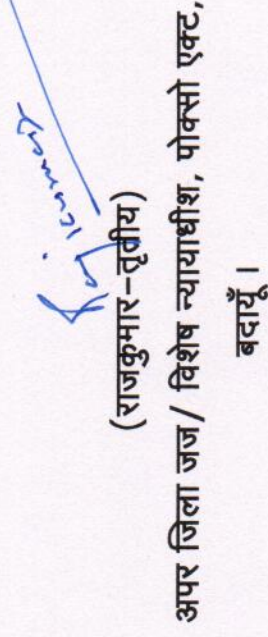 Raj Kumar
(राजकुमार-तृतीय)
अपर जिला जज/ विशेष न्यायाधीश, पोक्सो एक्ट,
बदायूँ ।